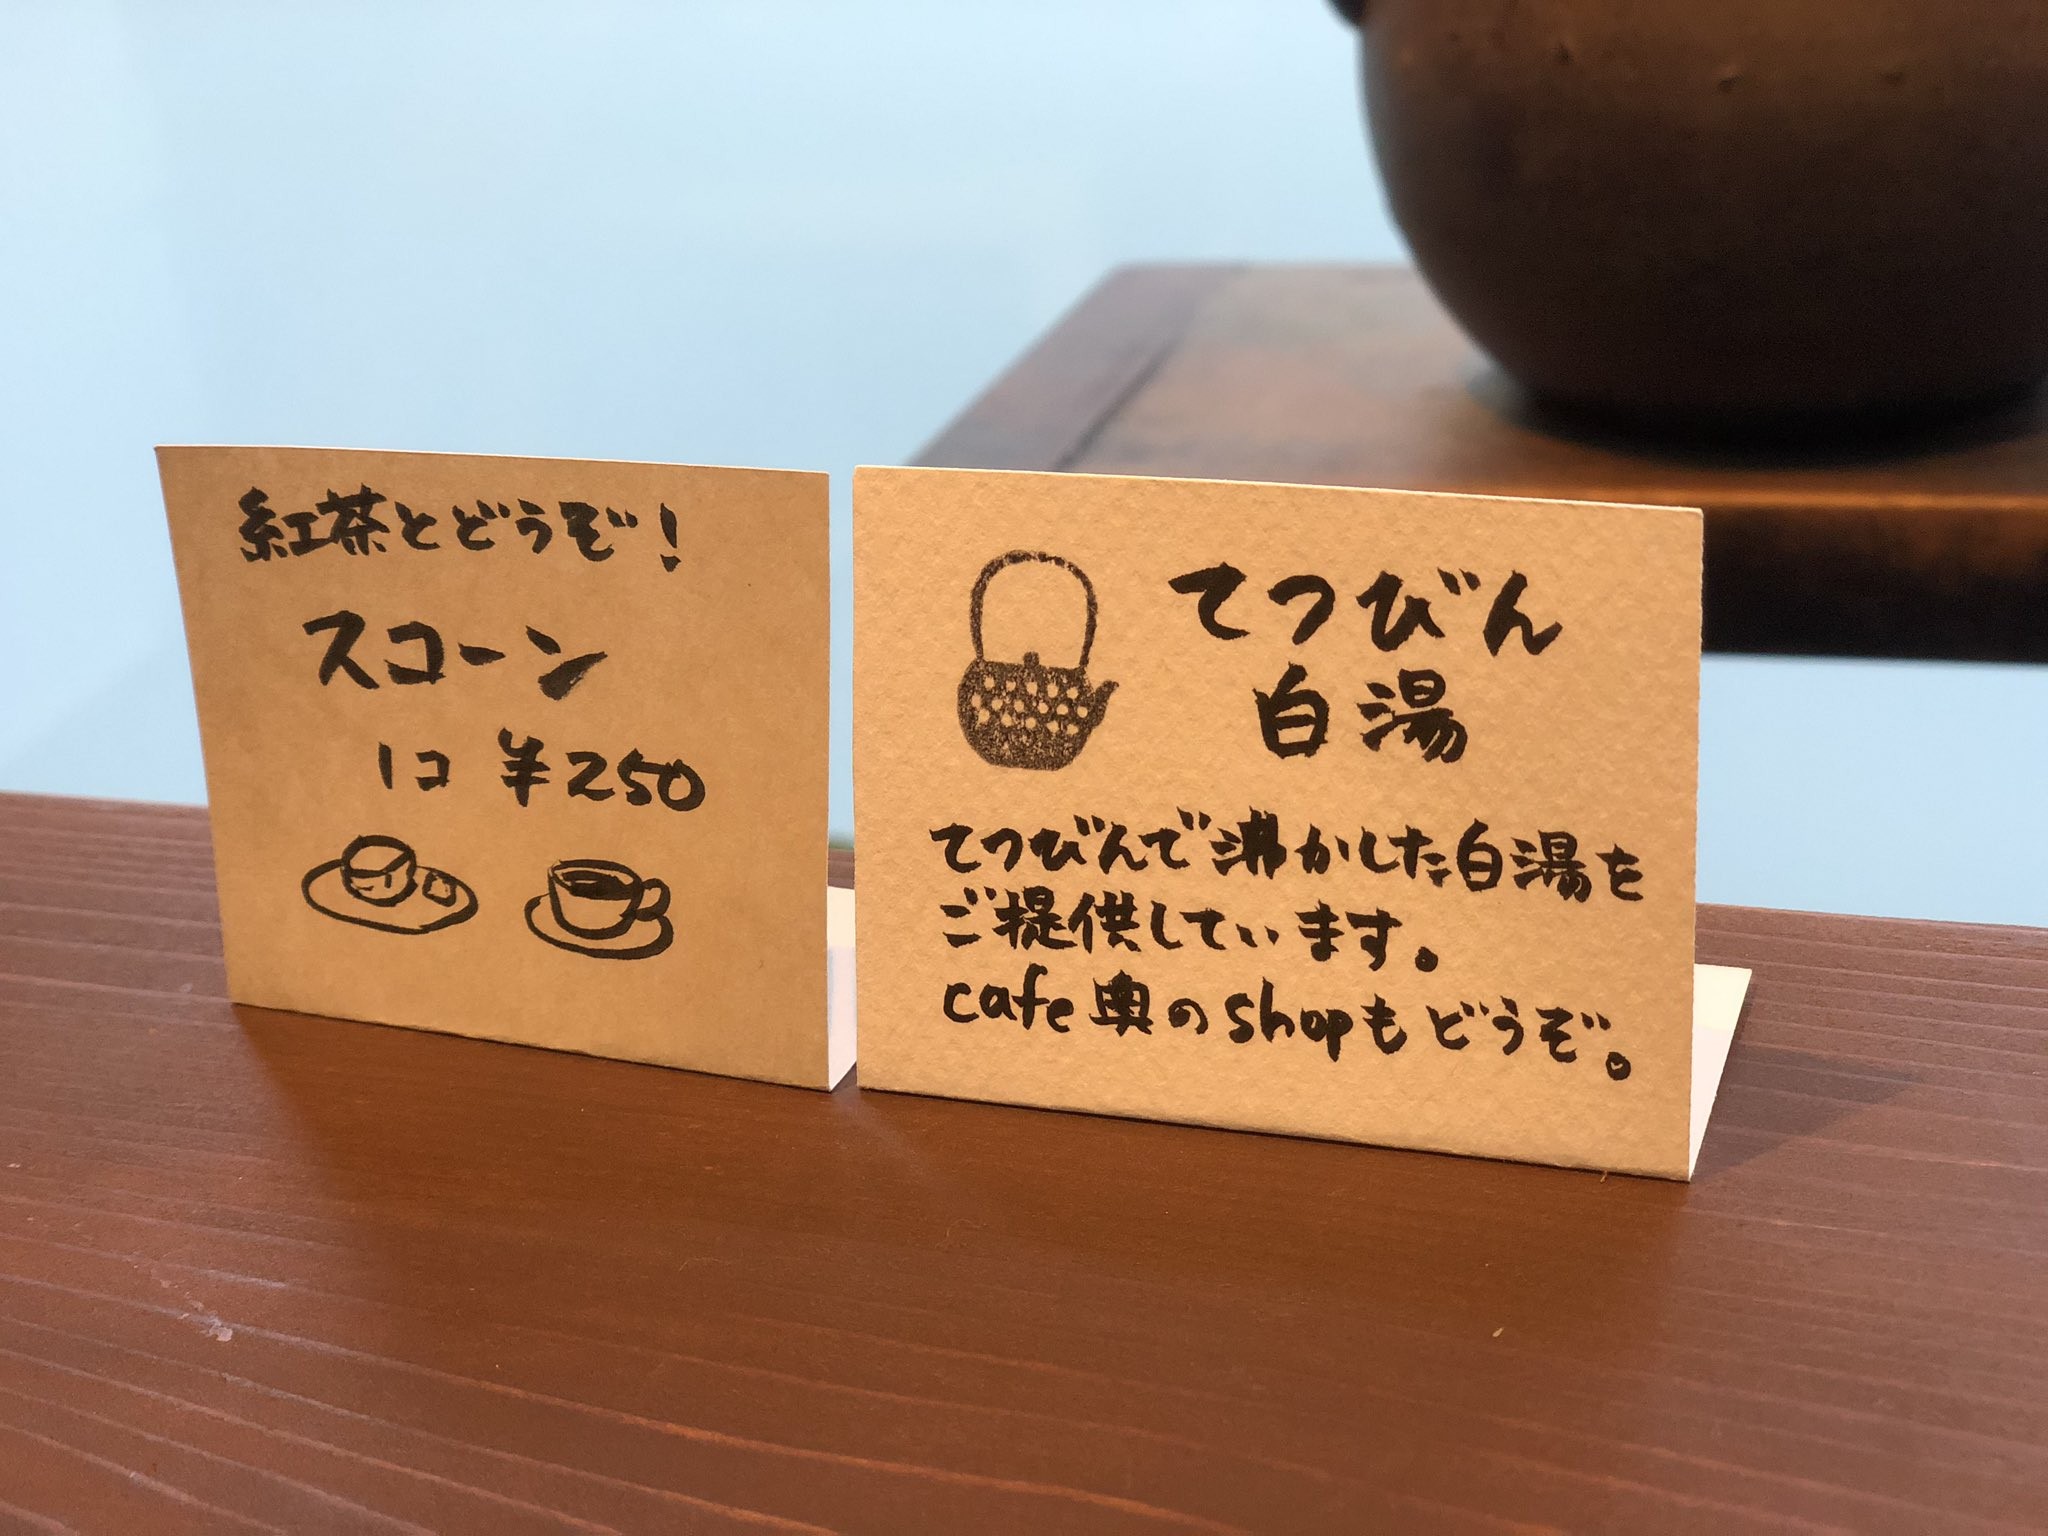 紅茶とどうぞ!
スコーン
1コ ¥250
てつびん
白湯
てつびんで沸かした白湯を
ご提供しています。
cafe奥のshopもどうぞ。